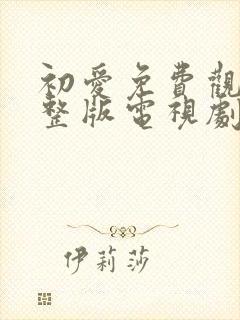 初愛免費觀
整版電視劇
伊莉莎